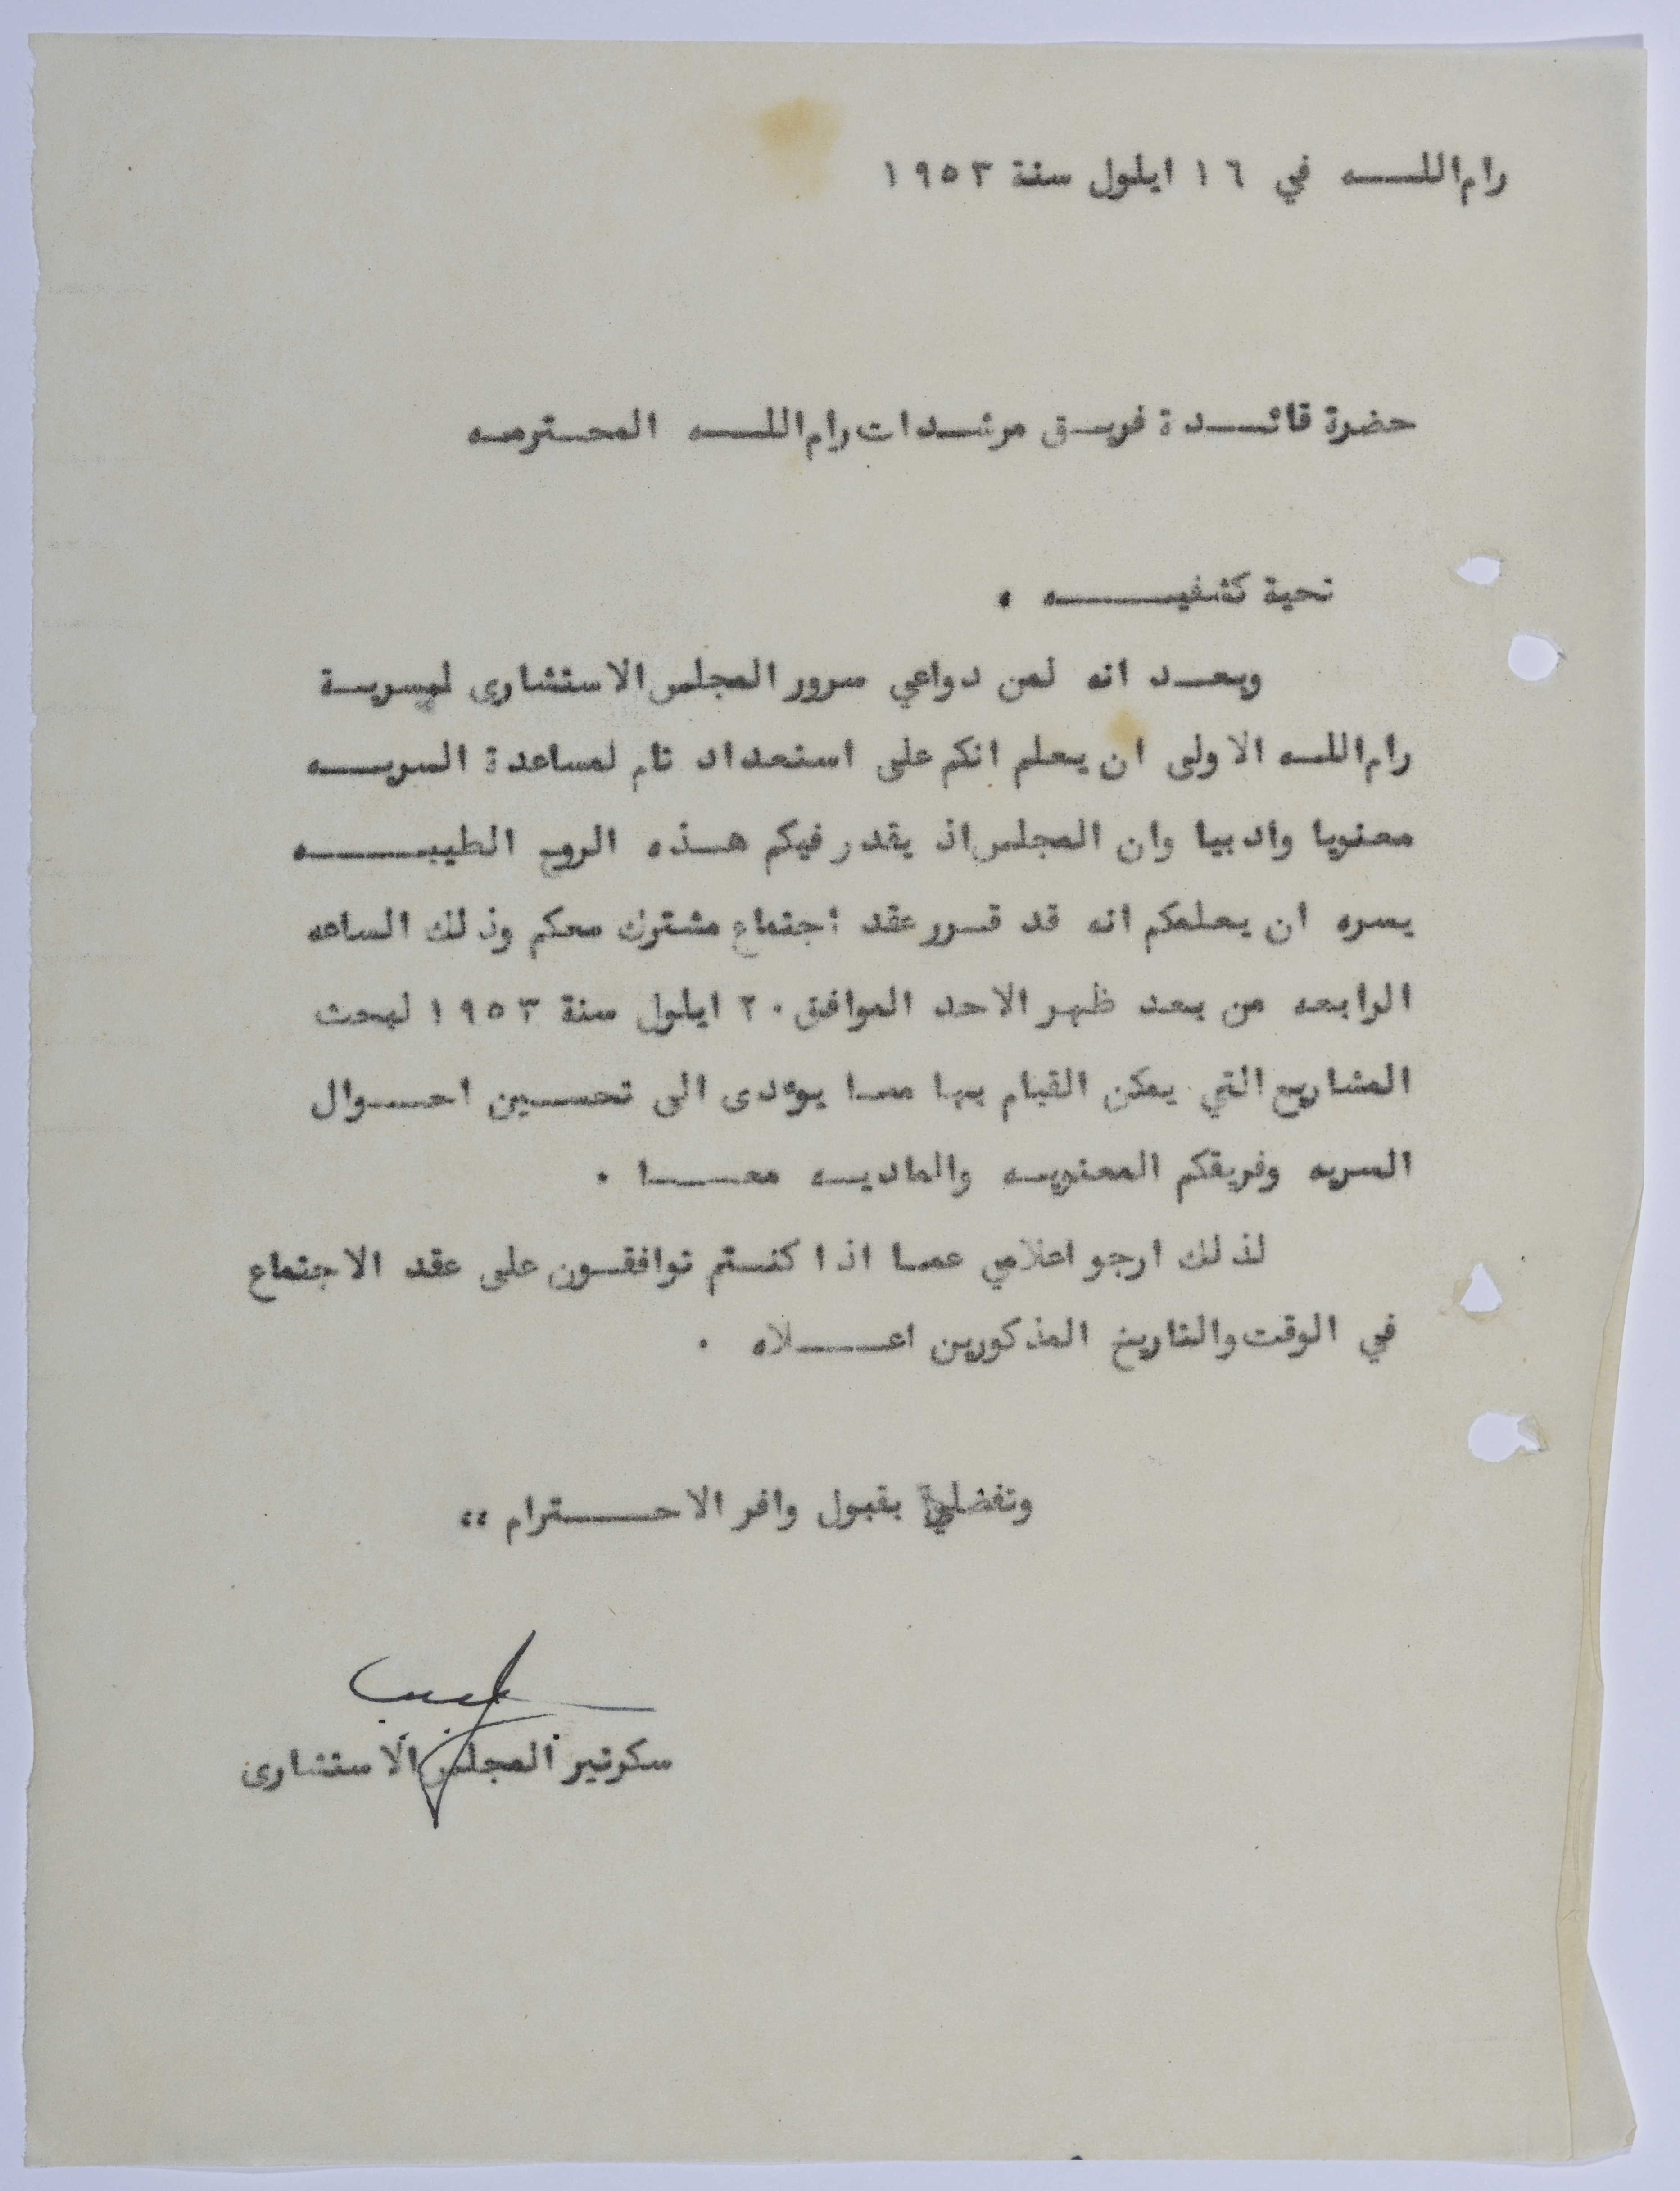 رام اللـــه في ١٦ ايلول سنة ١٩٥٣
حضرة قائـــدة فريـق مرشـدات رام اللـــه المحـترمـه
تحية كشفيـــــه ،
وبعــد انه لمن دواعي سرور المجلس الاستشارى لسريـة
رام اللـه الاولى ان يعلم انكم على استعداد تام لمساعدة السريــه
معنويا وادبيا وان المجلس اذ يقدر فيكم هـذه الروح الطيبـــه
يسره ان يعلمكم انه قد قـرر عقد اجتماع مشترك معكم وذلك الساعه
الرابعه من بعد ظهر الاحد الموافق ٢٠ ايلول سنة ١٩٥٣ لبحث
المشاريع التي يمكن القيام بها ممـا يؤدى الى تحسـين احــوال
السريه وفريقكم المعنويـه والماديـه معـــا .
لذلك ارجو اعلامي عمـا اذا كنـتم توافقـون على عقد الاجتماع
في الوقت والتاريخ المذكورين اعـــلاه .
وتفضلي بقبول وافر الاحـــترام ،،
سكرتير المجلس الاستشارى